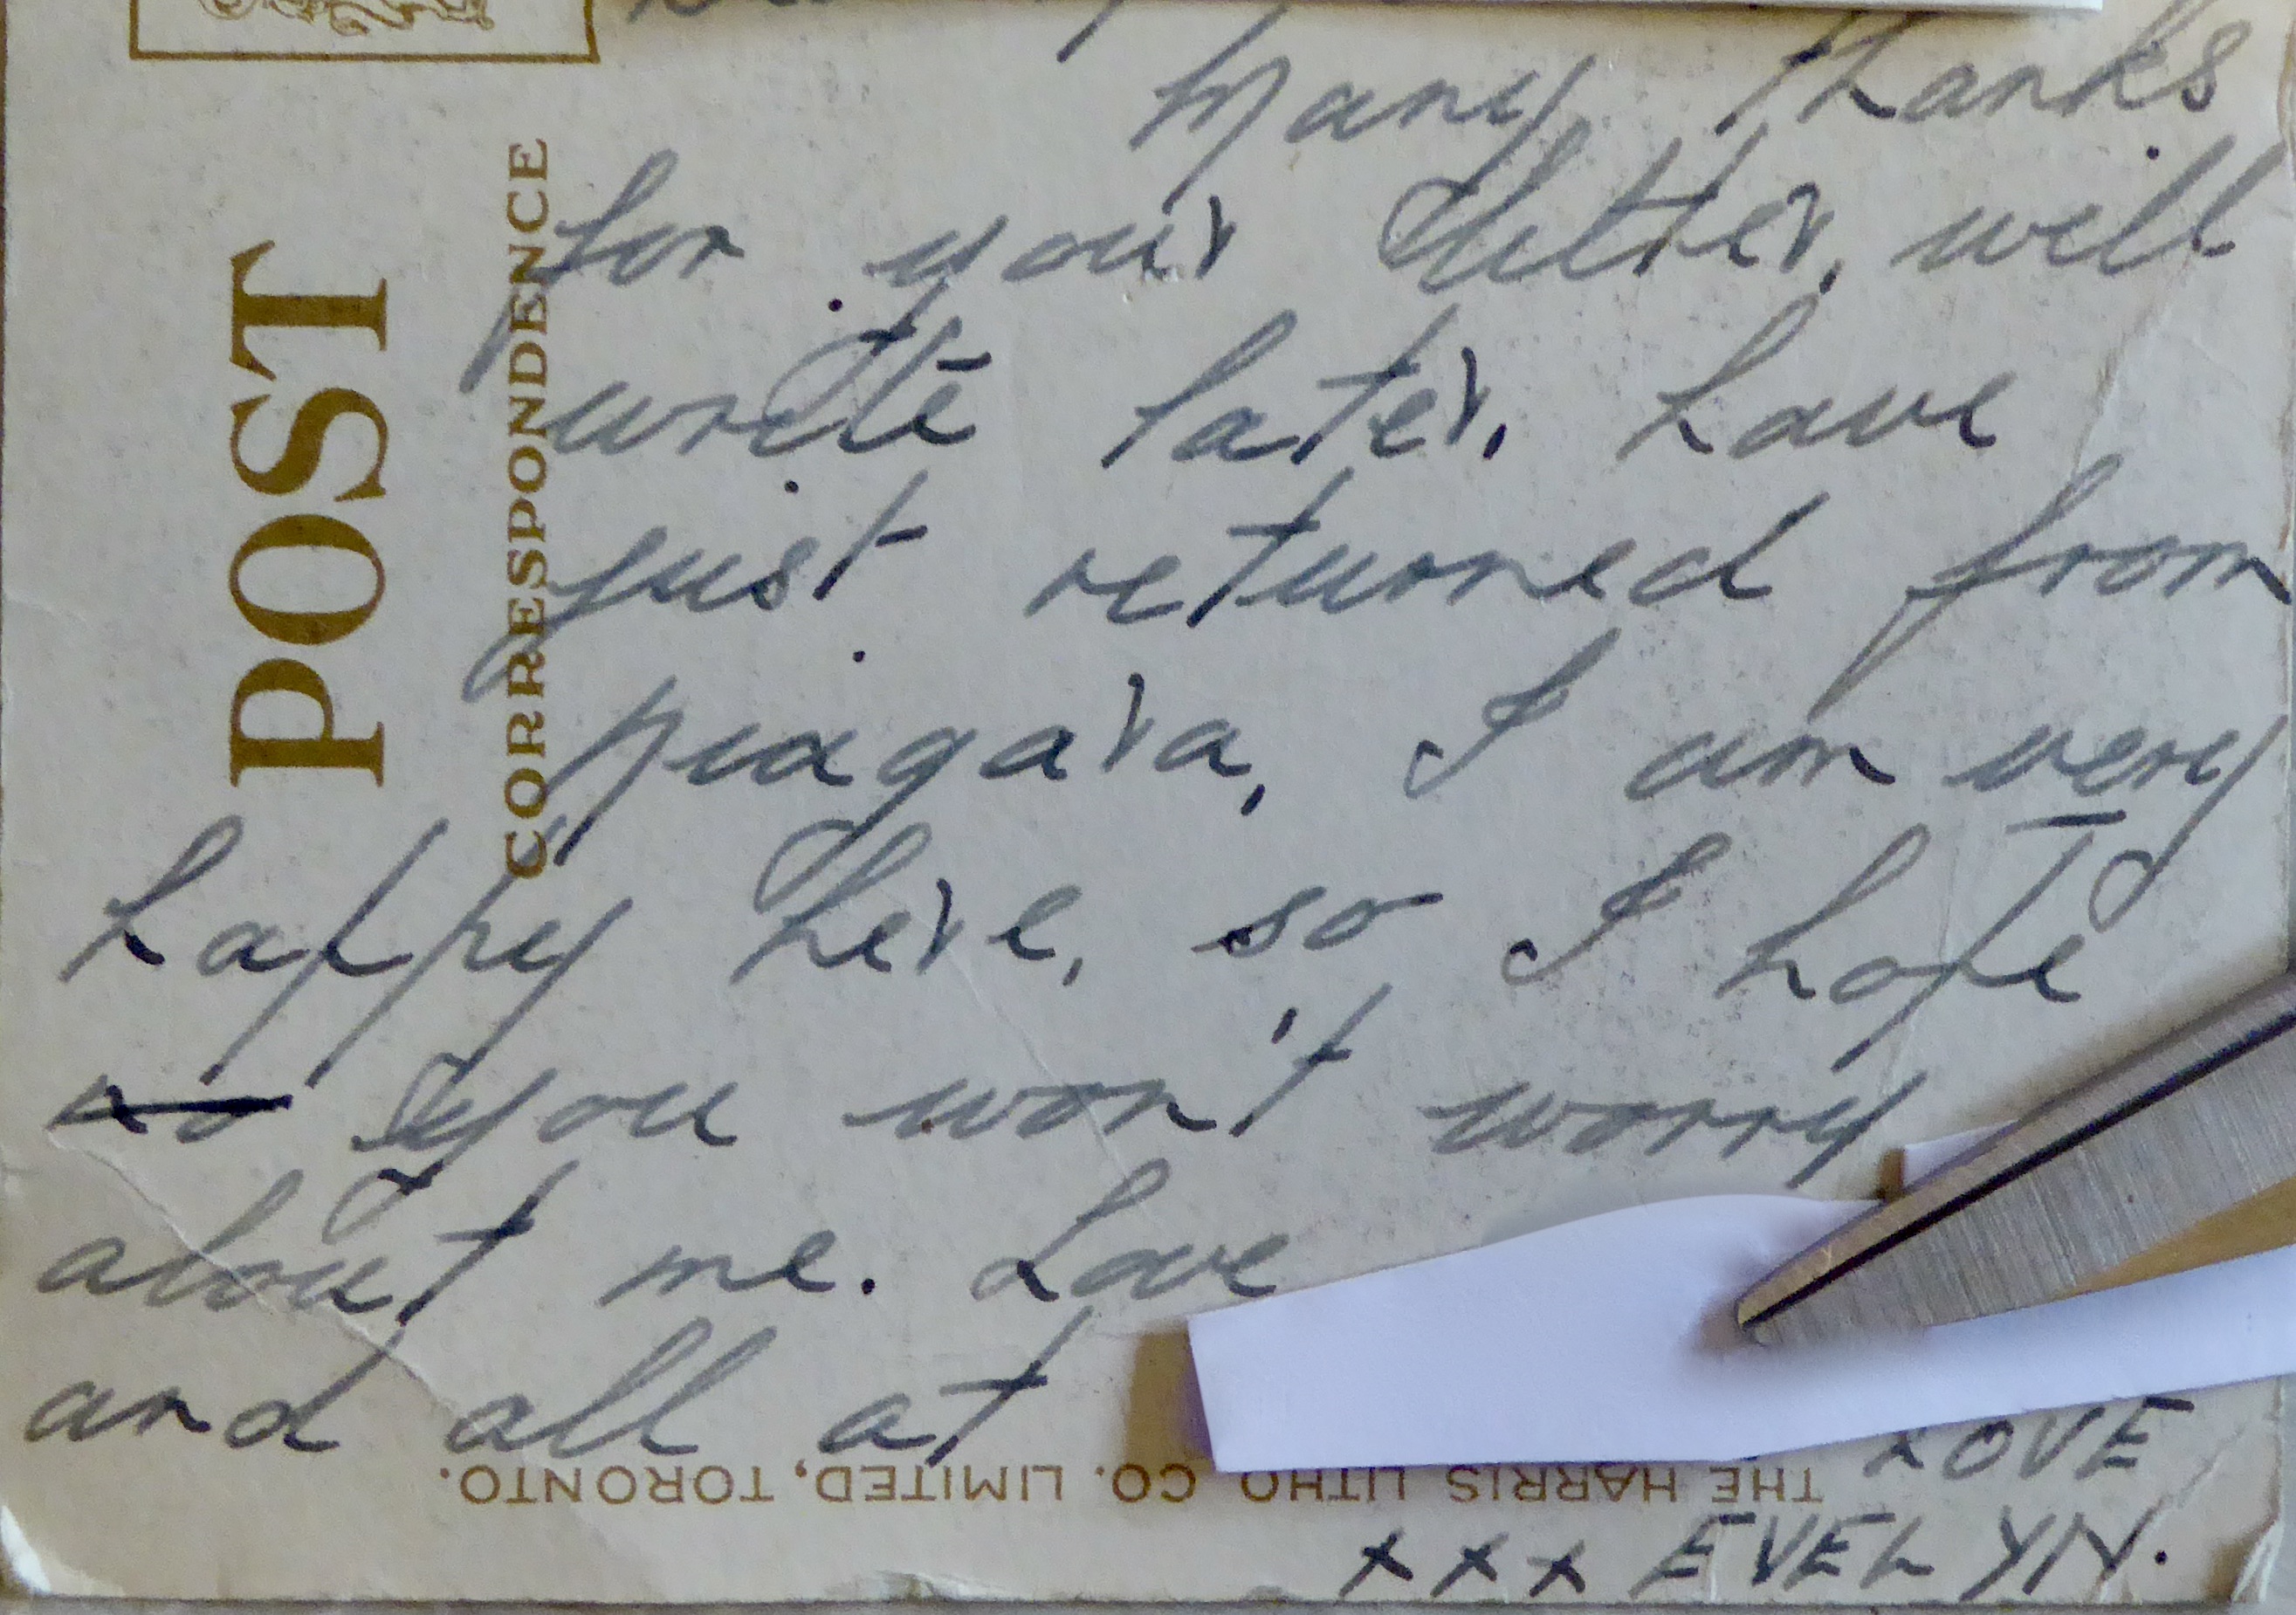 Many thanks
for your letter, will
write later, have
just returned from
niagara, I am very
happy here, so I hope
you won't worry
about me. Love
and all at
LOVE
xxx EVELYN.
POST
CORRESPONDENCE
THE HARRIS LITHO. CO. LIMITED, TORONTO.